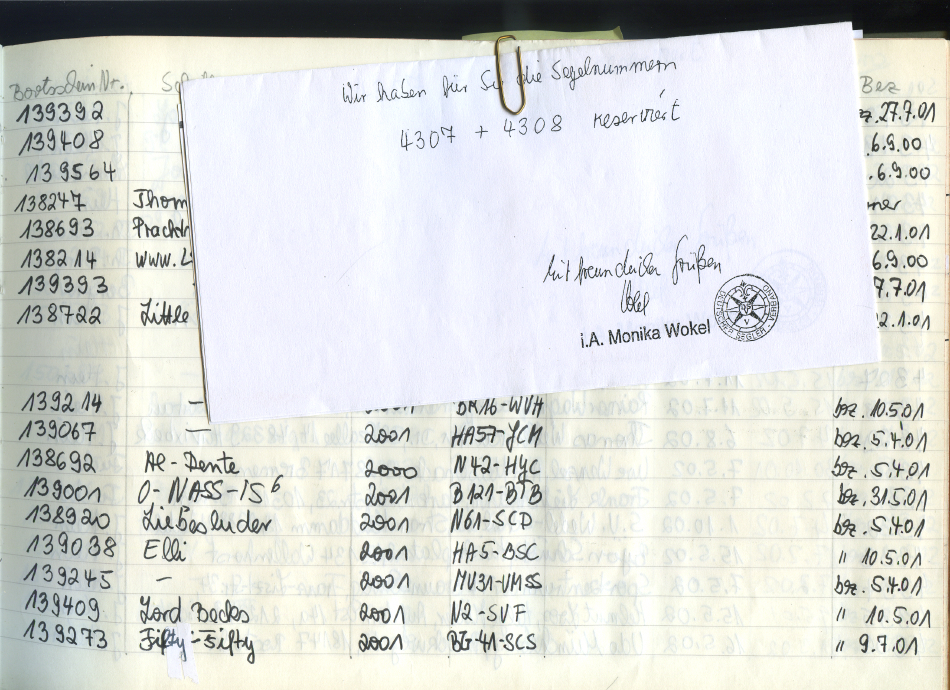 Bootsschein Nr. Bez
139392 bez. 27.7.01
139408 6.9.00
139564 6.9.00
138247 Thom
138693 Pracht 22.1.01
138214 www.L 6.9.00
139393 7.7.01
138722 Little 2.1.01
Wir haben für Sie die Segelnummern
4307 + 4308 reserviert
Mit freundlichen Grüßen
i.A. Monika Wokel
DEUTSCHER SEGLER-VERBAND
139214 — 2001 BR16-WVH bez. 10.5.01
139067 — 2001 HA57-YCM bez. 5.4.01
138692 Al-Dente 2000 N42-HYC bez. 5.4.01
139001 O-NASS-IS 6 2001 B121-BTB bez. 31.5.01
138920 Liebesluder 2001 N61-SCD bez. 5.4.01
139038 Elli 2001 HA5-BSC " 10.5.01
139245 — 2001 MV31-VMSS bez. 5.4.01
139409 Lord Becks 2001 N2-SVF " 10.5.01
139273 Fifty-Fifty 2001 BG-41-SCS " 9.7.01